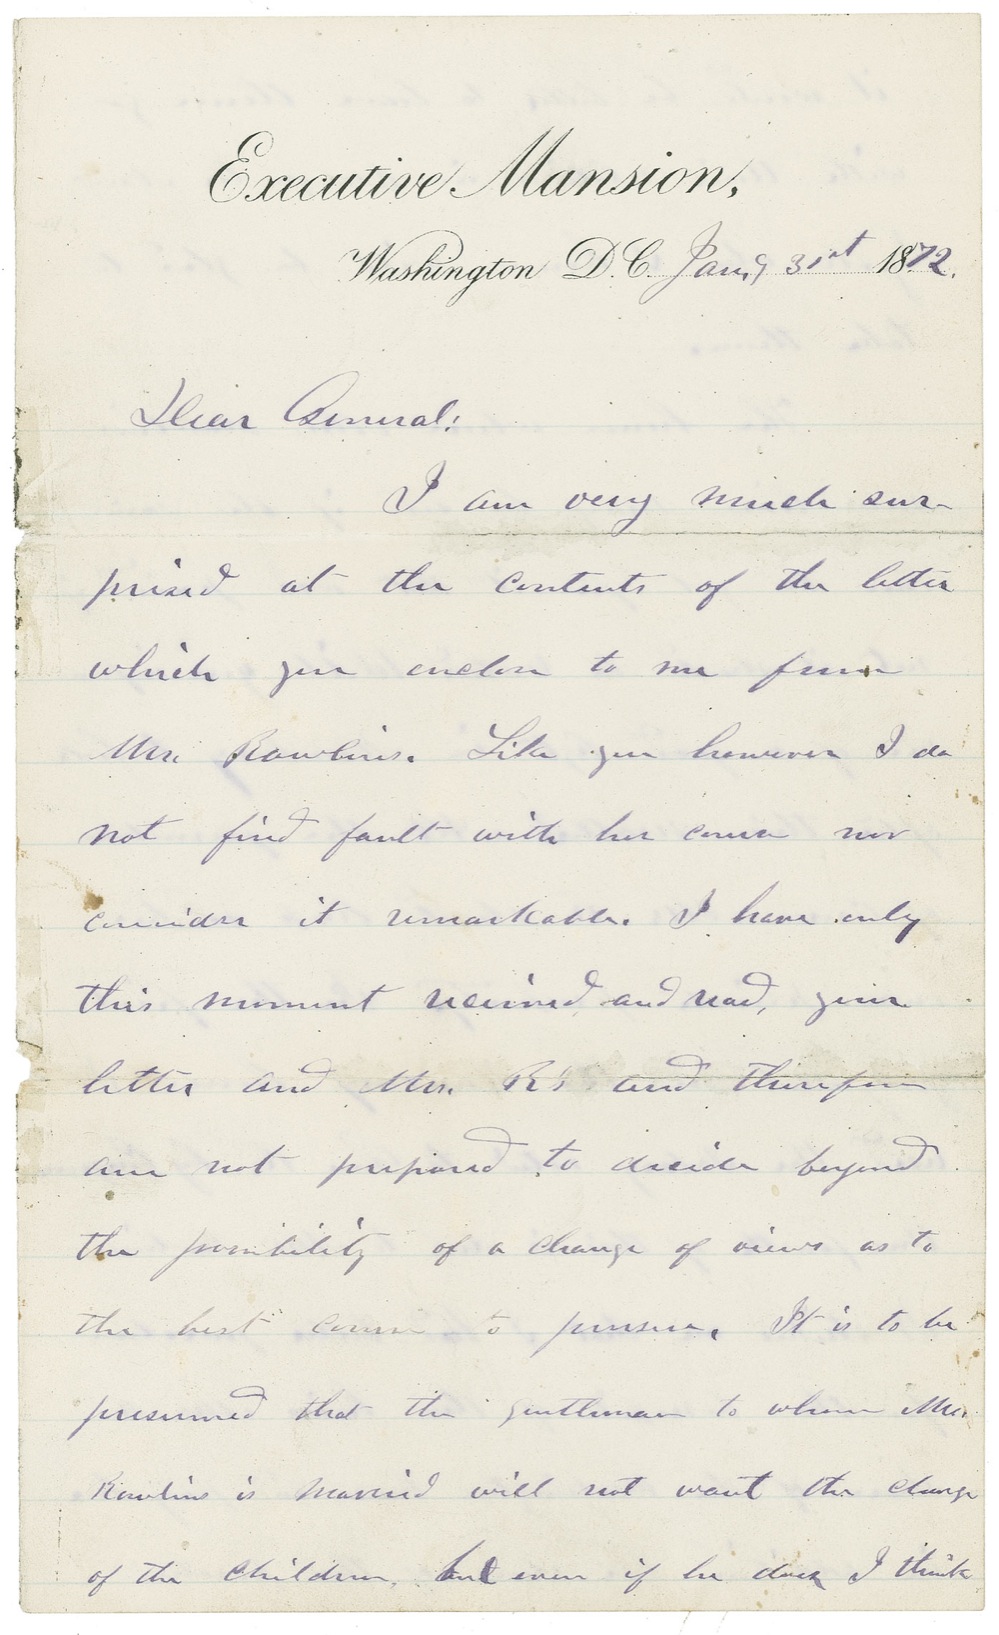 Executive Mansion,
Washington D.C. Jany 31st 1872.
Dear General:
I am very much sur-
prised at the contents of the letter
which you enclose to me from
Mrs. Rawlins. Like you however I do
not find fault with her course nor
consider it remarkable. I have only
this moment received, and read, your
letter and Mrs. R's and therefore
am not prepared to decide beyond
the possibility of a change of views as to
the best course to pursue. It is to be
presumed that the gentleman to whom Mrs.
Rawlins is married will not want the charge
of the children, but even if he does I think